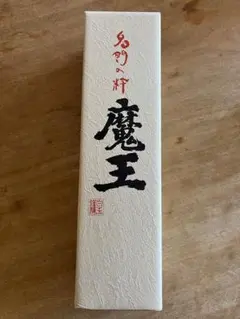 名門の粋
魔王